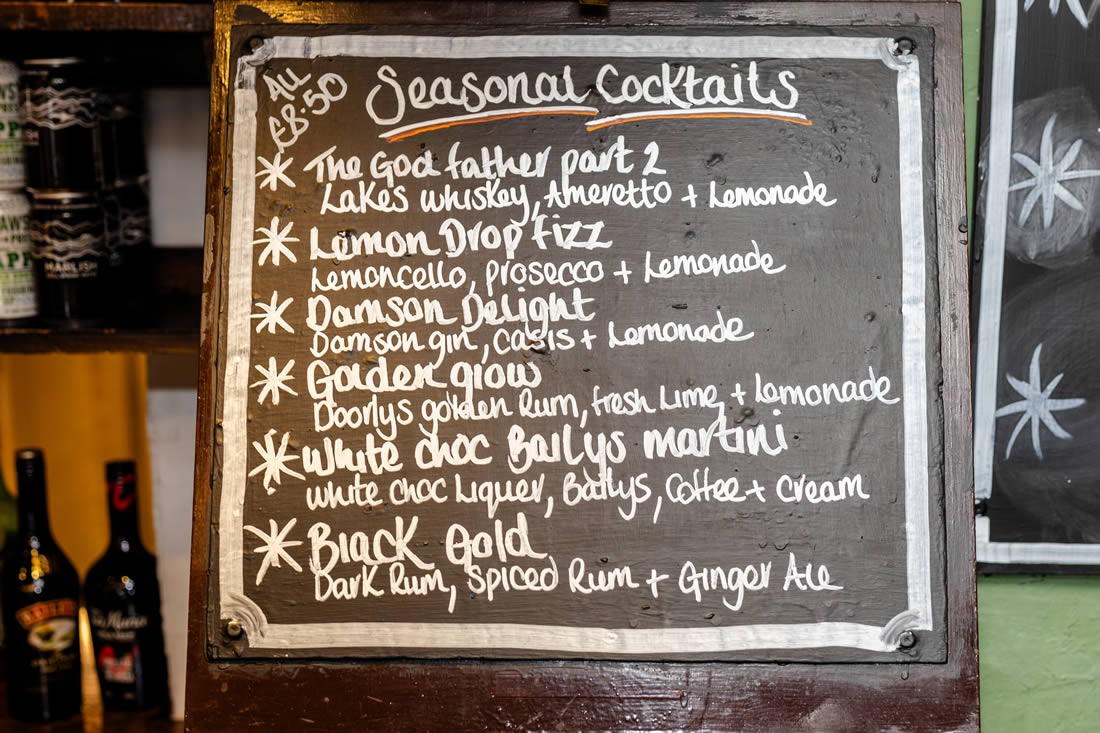 ALL
£8.50
Seasonal Cocktails
The God father part 2
Lakes whiskey, Ameretto + Lemonade
Lemon Drop fizz
Lemoncello, prosecco + Lemonade
Damson Delight
Damson gin, casis + Lemonade
Golden glow
Doorlys golden Rum, fresh Lime + Lemonade
White choc Bailys martini
white choc Liquer, Bailys, Coffee + Cream
Black Gold
Dark Rum, Spiced Rum + Ginger Ale
MARLISH
BAILEYS